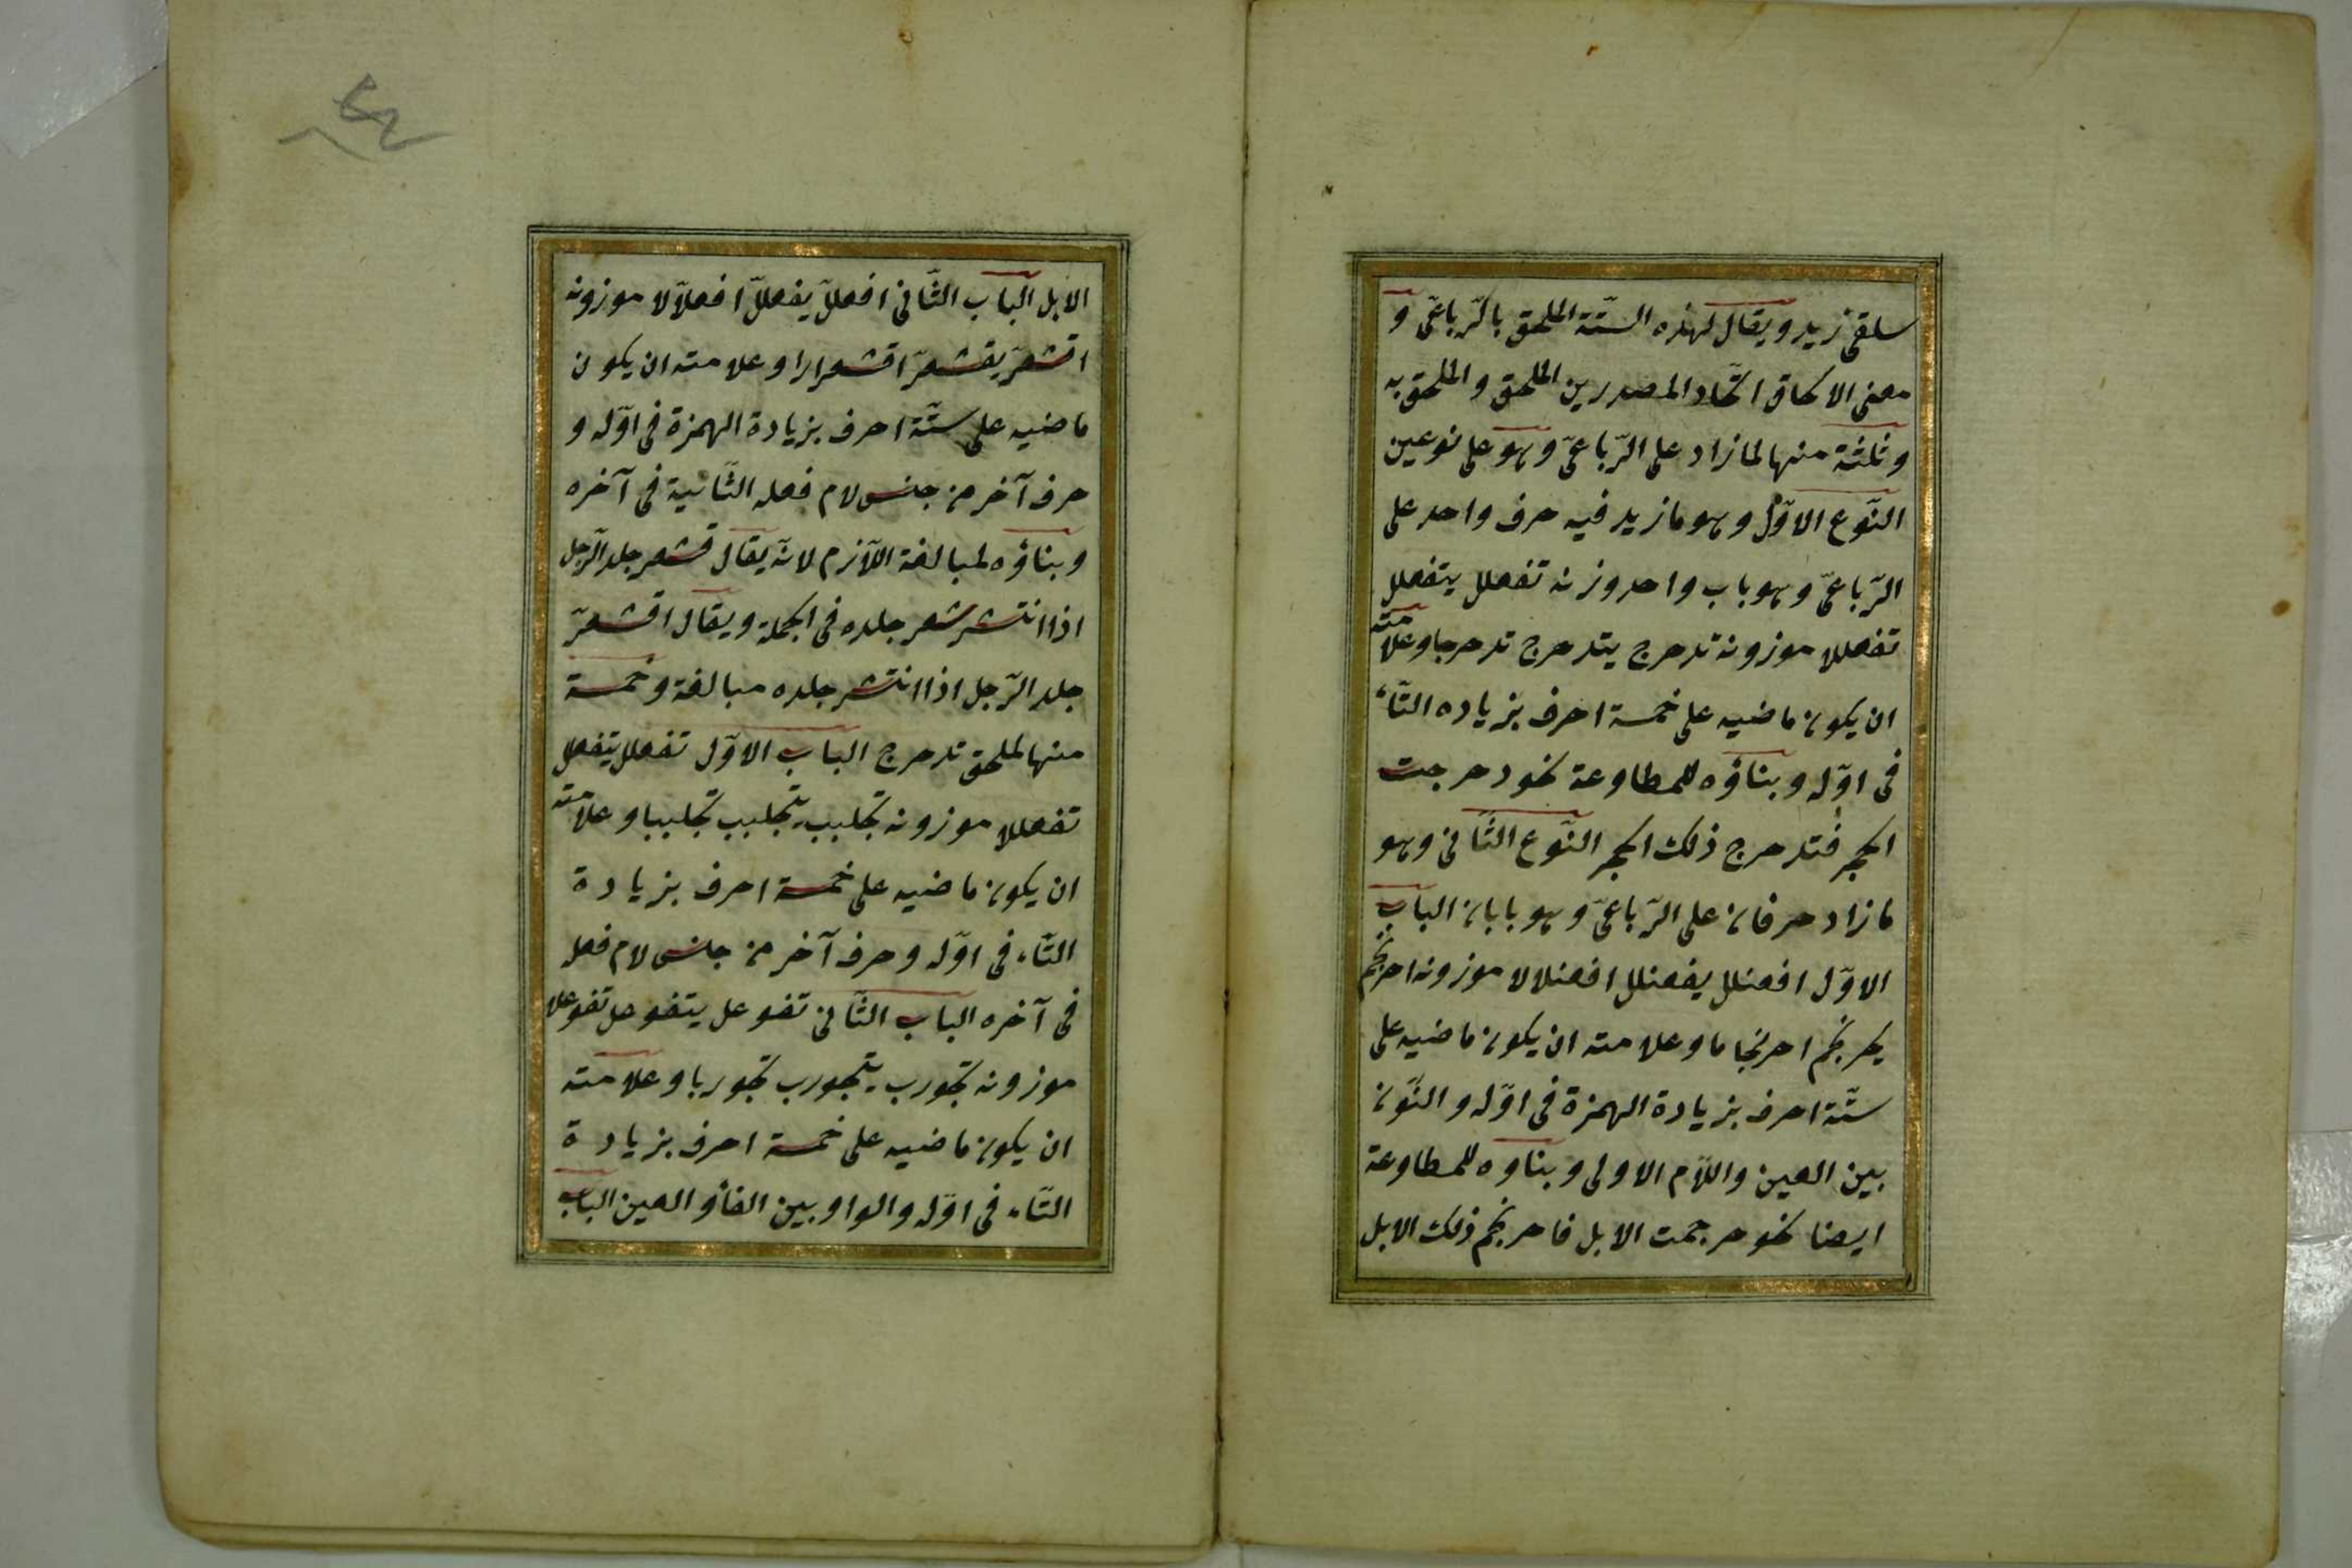 سلقى زيد ويقال لهذه الستّة الملحق بالرّباعىّ و
معنى الالحاق اتّحاد المصدرين الملحق والملحق به
وثلثة منها لما زاد على الرّباعىّ وهو على نوعين
النّوع الاوّل وهو ما زيد فيه حرف واحد على
الرّباعىّ وهو باب واحد وزنه تفعلل يتفعلل
تفعللا موزونه تدحرج يتدحرج تدحرجا وعلامته
ان يكون ماضيه على خمسة احرف بزياده التّاء
فى اوّله وبناؤه للمطاوعة نحو دحرجت
الحجر فتدحرج ذلك الحجر النّوع الثّانى وهو
ما زاد حرفان على الرّباعىّ وهو بابان الباب
الاوّل افعنلل يفعنلل افعنلالا موزونه احرنجم
يحرنجم احرنجاما وعلامته ان يكون ماضيه على
ستّة احرف بزيادة الهمزة فى اوّله والنّون
بين العين واللّام الاولى وبناوه للمطاوعة
ايضا نحو حرجمت الابل فاحرنجم ذلك الابل
الابل الباب الثّانى افعللّ يفعللّ افعلاّلا موزونه
اقشعرّ يقشعرّ اقشعرارا وعلامته ان يكون
ماضيه على ستّة احرف بزيادة الهمزة فى اوّله و
حرف آخر من جنس لام فعله الثّانية فى آخره
وبناؤه لمبالغة اللّازم لانّه يقال قشعر جلد الرّجل
اذا انتشر شعر جلده فى الجملة ويقال اقشعرّ
جلد الرّجل اذا انتشر جلده مبالغة وخمسة
منها لملحق تدحرج الباب الاوّل تفعلل يتفعلل
تفعللا موزونه تجلبب يتجلبب تجلببا وعلامته
ان يكون ماضيه على خمسة احرف بزيادة
التّاء فى اوّله وحرف آخر من جنس لام فعله
فى آخره الباب الثّانى تفوعل يتفوعل تفوعلا
موزونه تجورب يتجورب تجوربا وعلامته
ان يكون ماضيه على خمسة احرف بزيادة
التّاء فى اوّله والواو بين الفاء والعين الباب